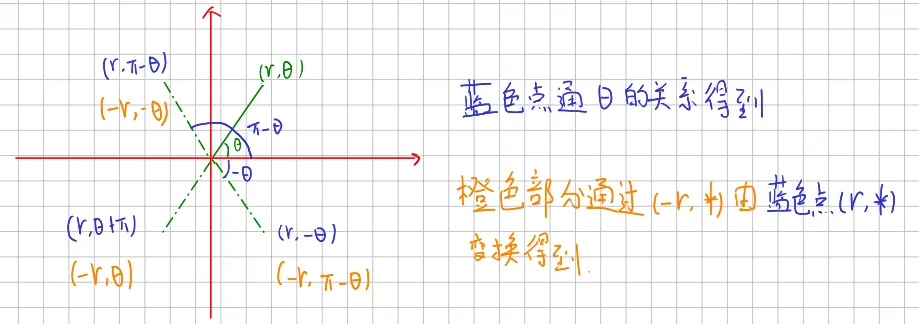 (r,π-θ)
(r,θ)
(-r,-θ)
π-θ
θ
-θ
(r,θ+π)
(r,-θ)
(-r,θ)
(-r,π-θ)
蓝色点通θ的关系得到
橙色部分通过(-r,*)由蓝色点(r,*)
变换得到.